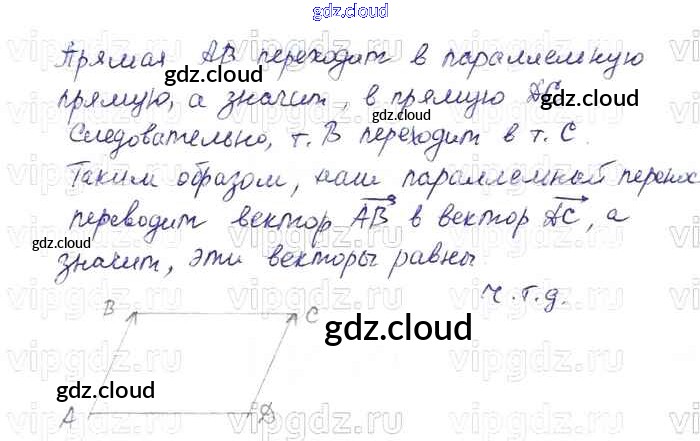 gdz.cloud
Прямая AB переходит в параллельную
прямую, а значит, в прямую DC.
Следовательно, т. B переходит в т. C.
Таким образом, наш параллельный перенос
переводит вектор AB в вектор DC, а
значит, эти векторы равны
ч.т.д.
B C
A D
gdz.cloud
gdz.cloud
gdz.cloud
gdz.cloud
gdz.cloud
gdz.cloud
gdz.cloud
vipgdz.ru